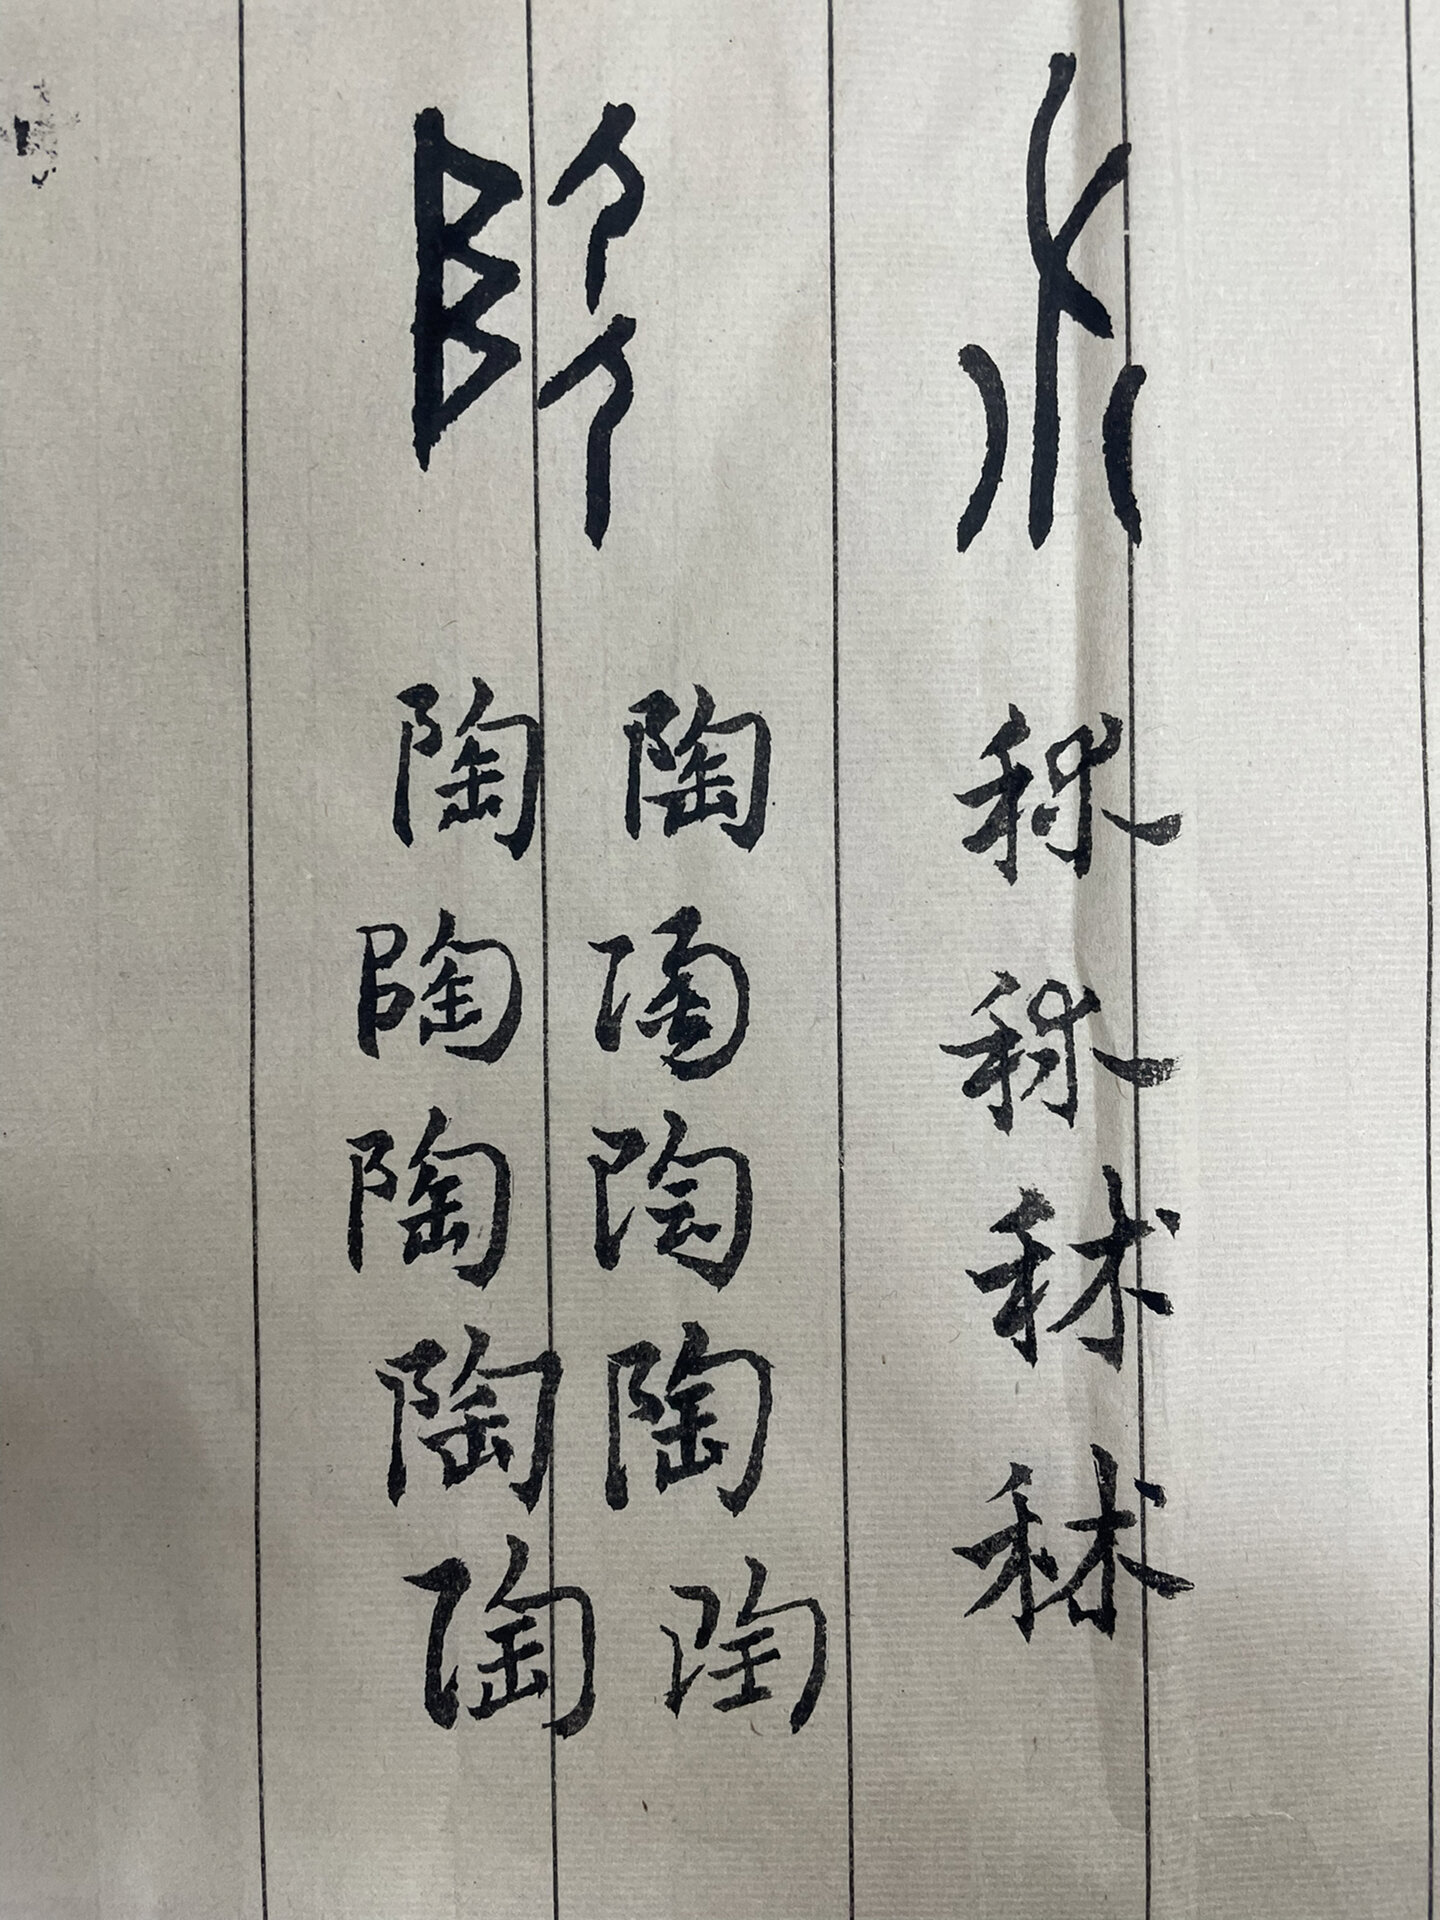 秫
秫
秫
秫
陶
陶
陶
陶
陶
陶
陶
陶
陶
陶